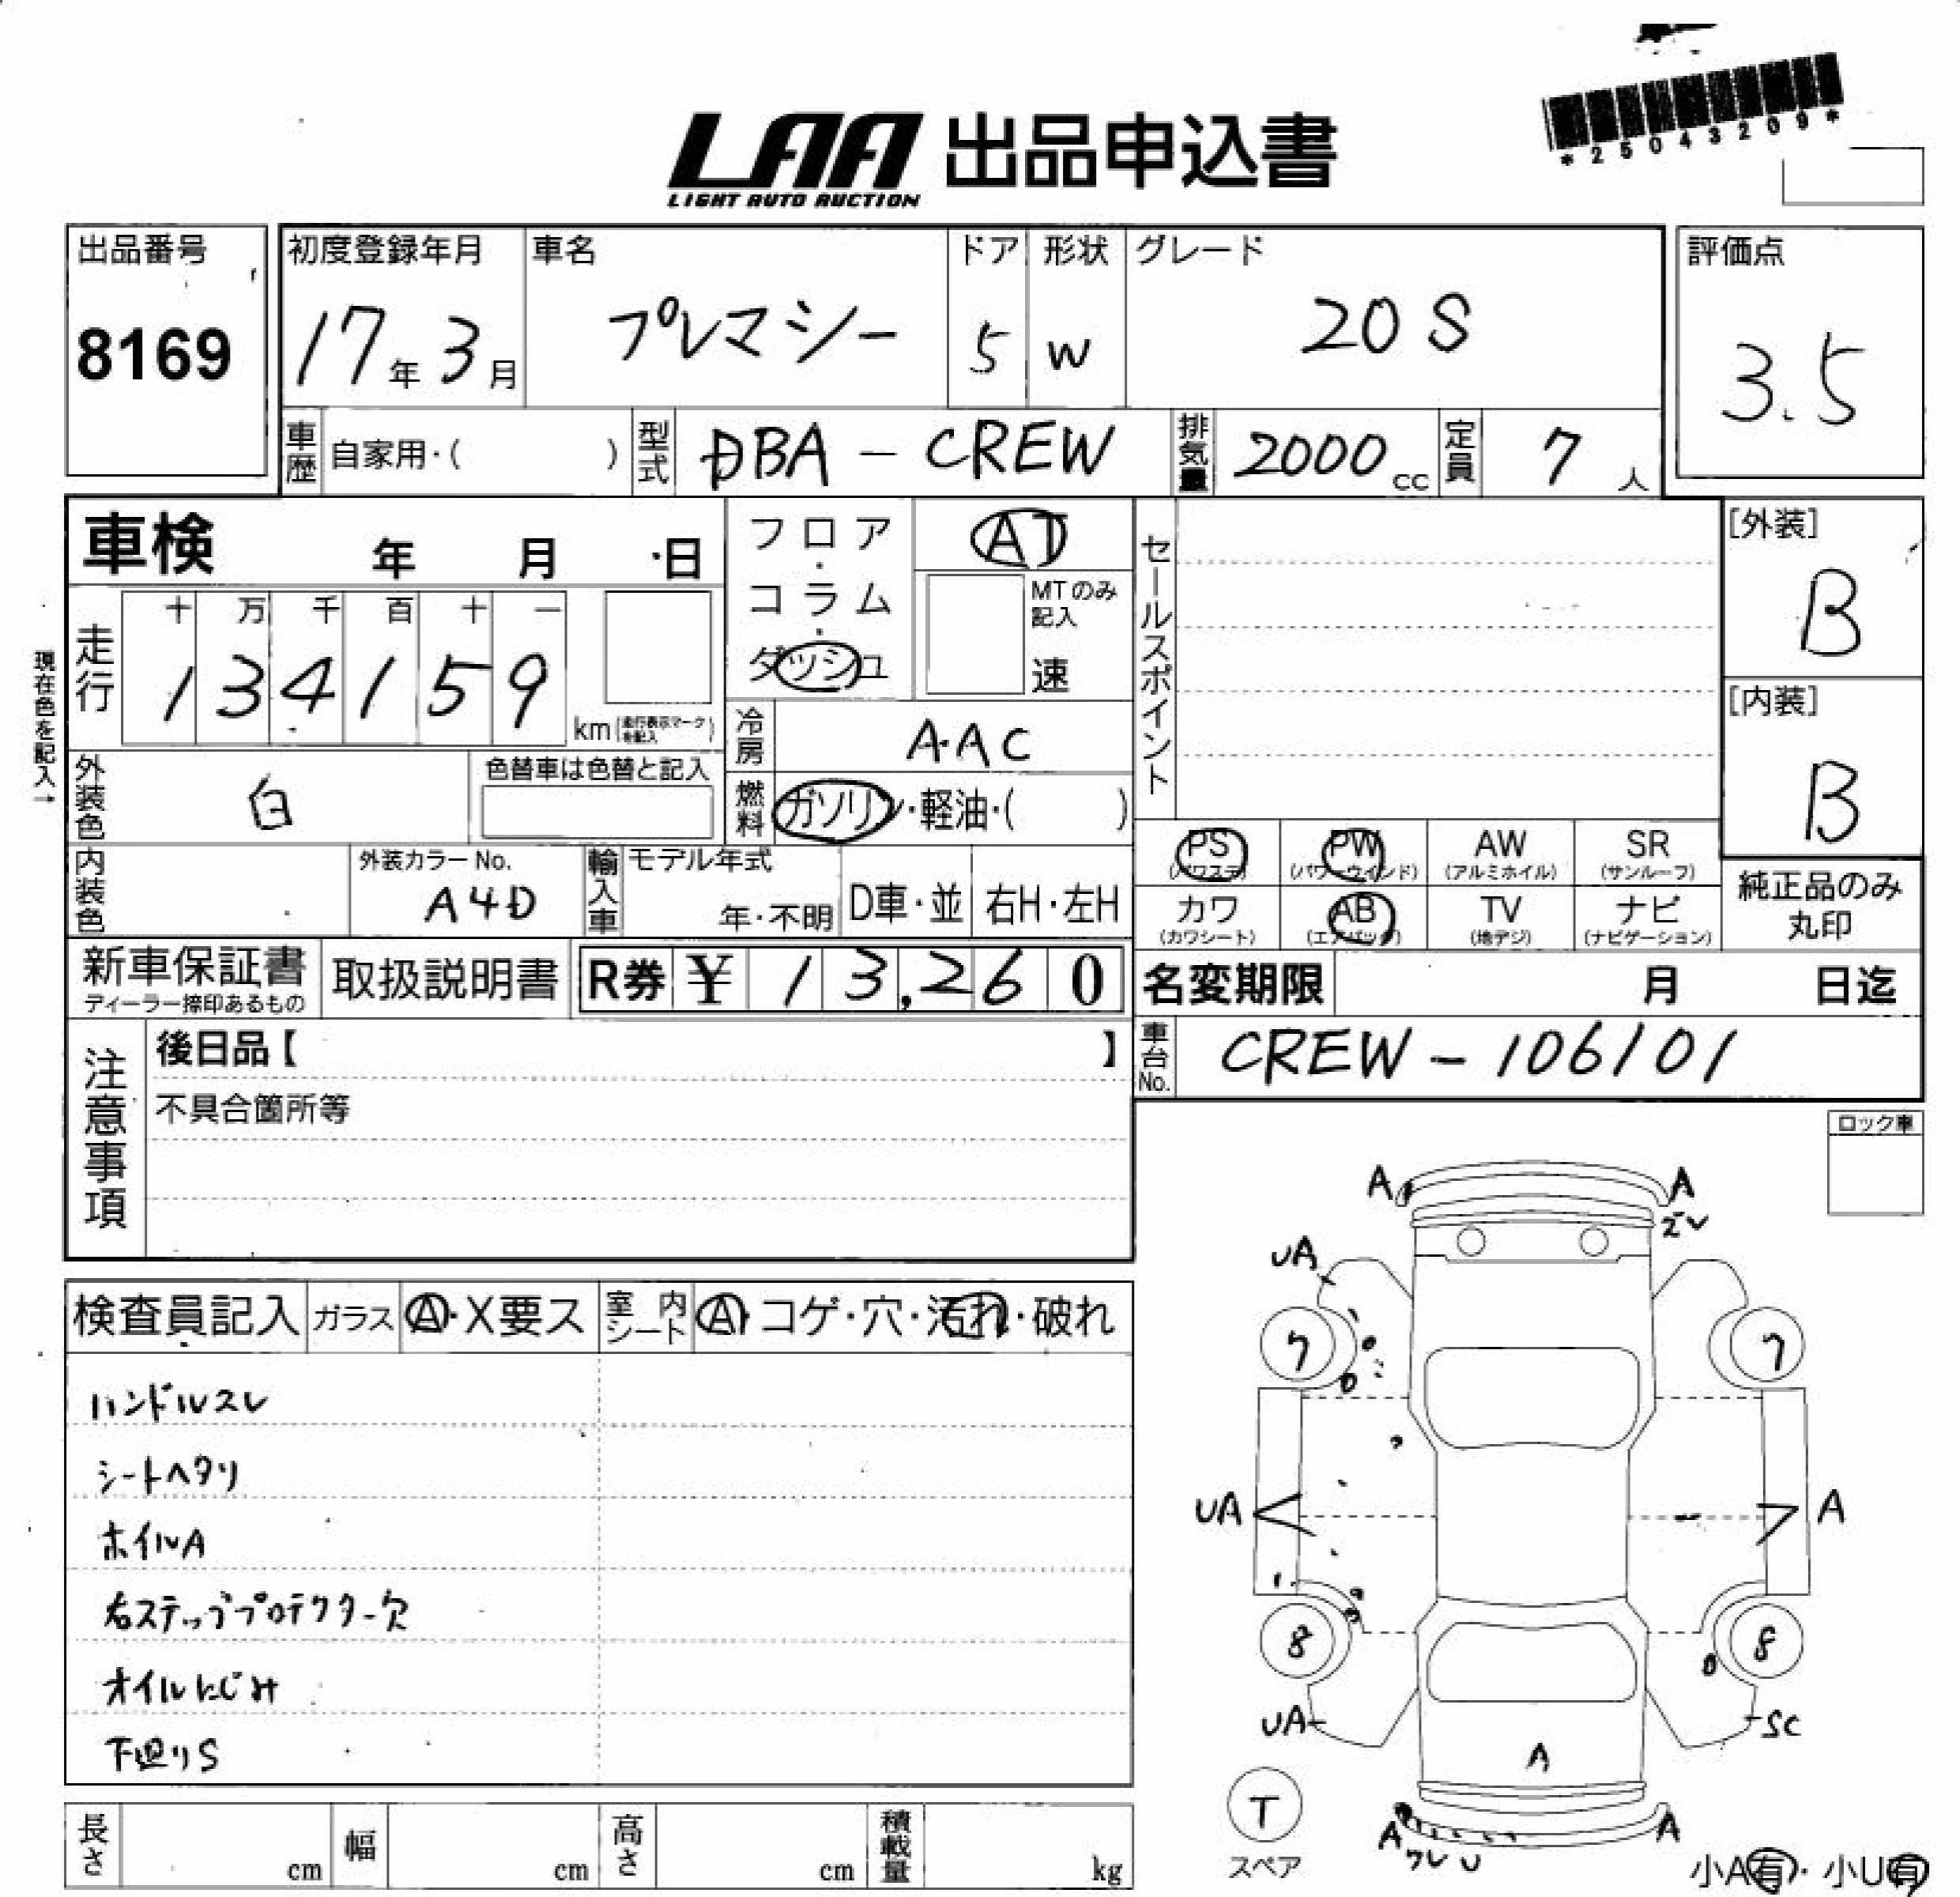 LAA 出品申込書
LIGHT AUTO AUCTION
*25043209*
出品番号
8169
初度登録年月
17年3月
車名
プレマシー
ドア
5
形状
W
グレード
20S
評価点
3.5
車歴 自家用・( )
型式 DBA-CREW
排気量 2000cc
定員 7人
車検 年 月 日
フロア・コラム・ダッシュ
AT
MTのみ記入
速
セールスポイント
[外装]
B
[内装]
B
現在色を記入→
走行
十 万 千 百 十 一
1 3 4 1 5 9
km(走行表示マークを記入)
冷房 AAC
外装色 白
色替車は色替と記入
燃料 ガソリン・軽油・( )
内装色
外装カラーNo.
A4D
輸入車
モデル年式
年・不明
D車・並
右H・左H
PS (パワステ)
PW (パワーウインド)
AW (アルミホイル)
SR (サンルーフ)
カワ (カワシート)
AB (エアバッグ)
TV (地デジ)
ナビ (ナビゲーション)
純正品のみ
丸印
新車保証書
ディーラー捺印あるもの
取扱説明書
R券 ¥13,260
名変期限 月 日迄
車台No. CREW-106101
注意事項
後日品【 】
不具合箇所等
ロック車
検査員記入
ガラス A・X要ス
室内シート A・コゲ・穴・汚れ・破れ
ハンドルスレ
シートヘタリ
ホイルA
右ステッププロテクター欠
オイルにじみ
下廻りS
A A
ズレ
UA
7 7
UA A
8 8
UA SC
A
T
スペア
A A
ワレ U
小A有・小U有
長さ cm
幅 cm
高さ cm
積載量 kg